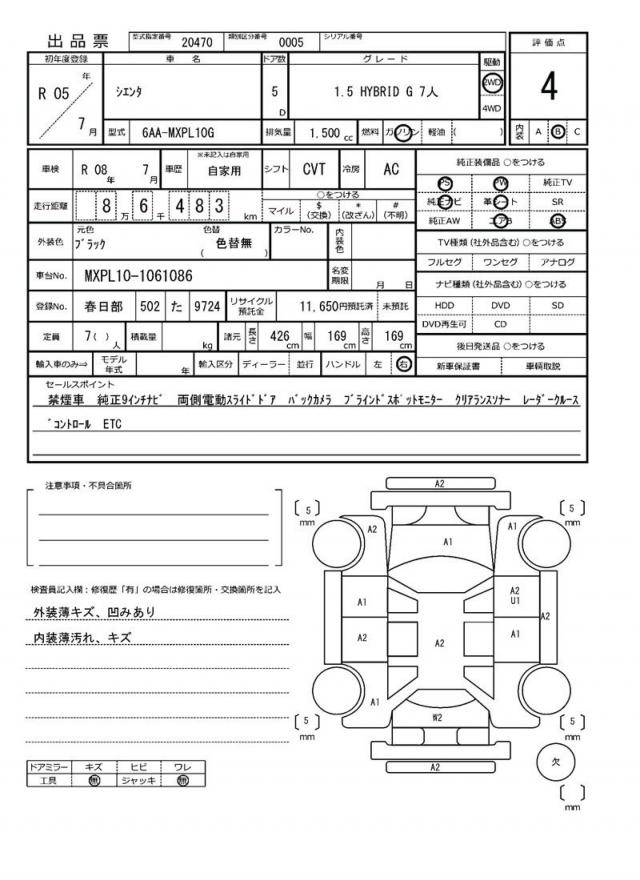 出品票 型式指定番号 20470 類別区分番号 0005 シリアル番号
評価点
4
初年度登録 車名 ドア数 グレード 駆動
R 05 年 7 月
シエンタ 5 D 1.5 HYBRID G 7人 2WD 4WD
型式 6AA-MXPL10G 排気量 1,500 cc 燃料 ガソリン 軽油 ( )
内装 A B C
車検 R 08 年 7 月 車歴 ※未記入は自家用 自家用 シフト CVT 冷房 AC
走行距離 8 万 6 千 4 8 3 km
○をつける
マイル $ (交換) * (改ざん) # (不明)
外装色 元色 ブラック 色替 ( 色替無 ) カラーNo. 内装色
車台No. MXPL10-1061086 名変期限 月 日
登録No. 春日部 502 た 9724 リサイクル預託金 11,650円預託済 未預託
定員 7( ) 人 積載量 kg 諸元 長さ 426 cm 幅 169 cm 高さ 169 cm
輸入車のみ⇒ モデル年式 年 輸入区分 ディーラー 並行 ハンドル 左 右
純正装備品 ○をつける
PS PW 純正TV
純正ナビ 革シート SR
純正AW エアB ABS
TV種類(社外品含む)○をつける
フルセグ ワンセグ アナログ
ナビ種類(社外品含む)○をつける
HDD DVD SD
DVD再生可 CD
後日発送品 ○をつける
新車保証書 車輌取説
セールスポイント
禁煙車 純正9インチナビ 両側電動スライドドア バックカメラ ブラインドスポットモニター クリアランスソナー レーダークルーズ
コントロール ETC
注意事項・不具合箇所
検査員記入欄:修復歴「有」の場合は修復箇所・交換箇所を記入
外装薄キズ、凹みあり
内装薄汚れ、キズ
ドアミラー キズ ヒビ ワレ
工具 無 ジャッキ 無
A2
5 mm
5 mm
A2
A1
A1
A1
A2
U1
A2
A2
A2
A1
A1
W2
5 mm
5 mm
A2
欠
mm